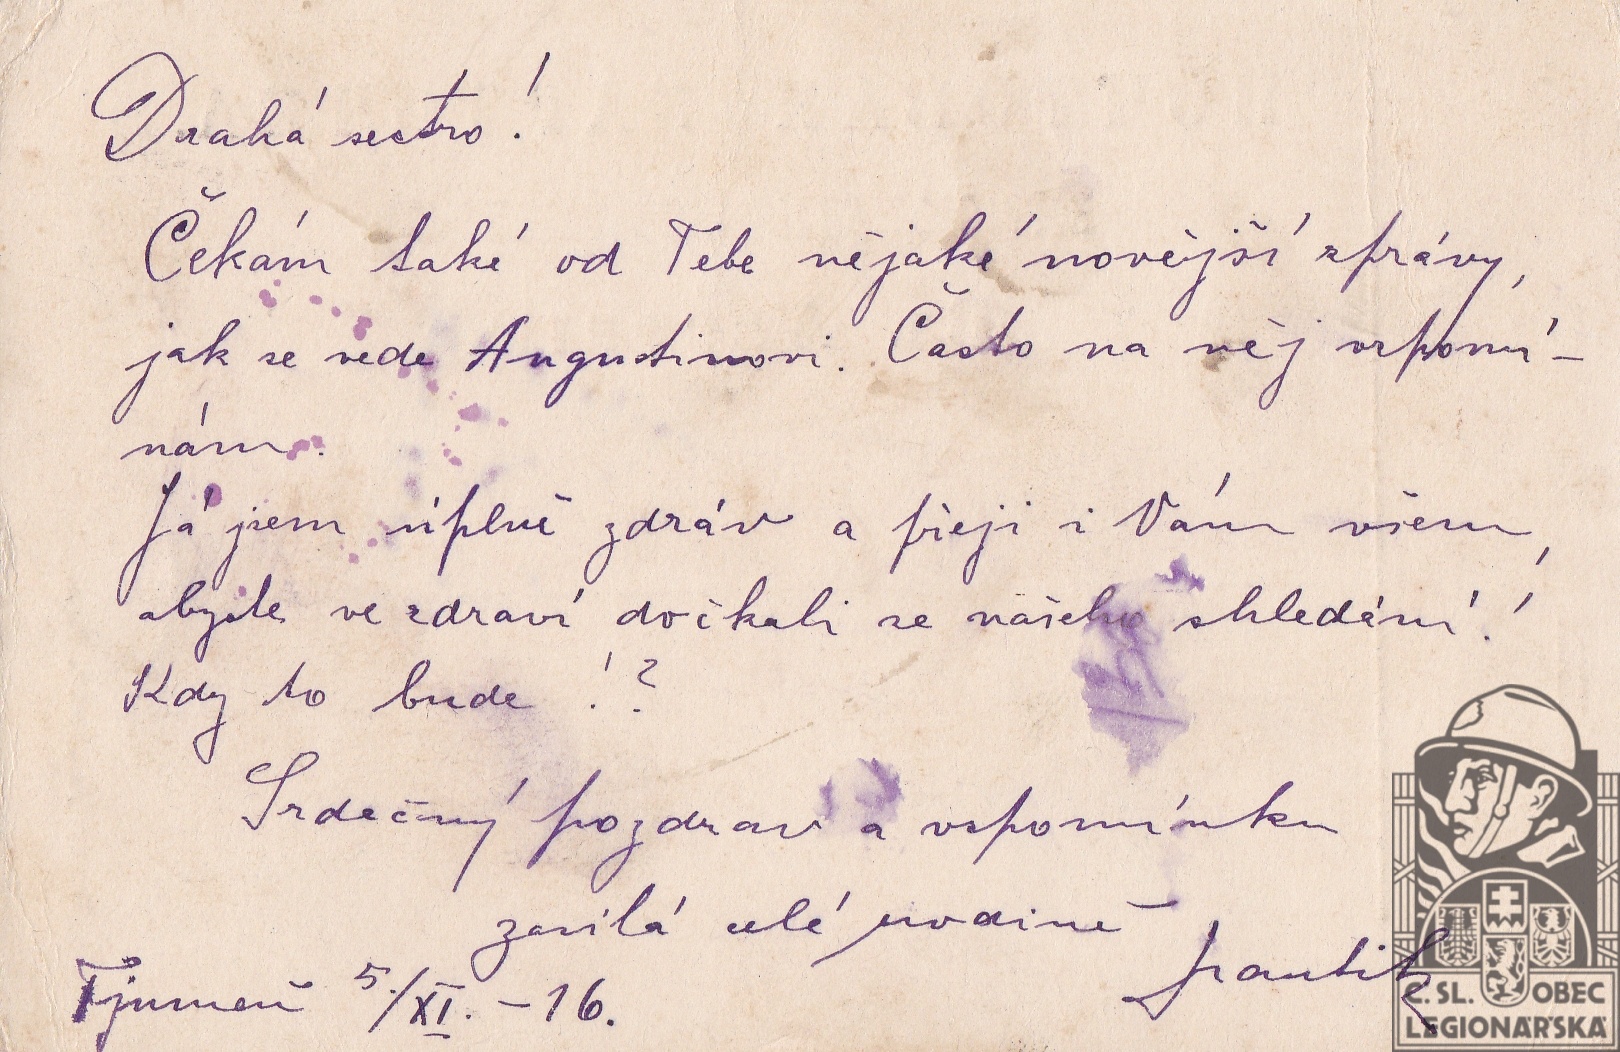 Drahá sestro!
Čekám také od Tebe nějaké novější zprávy,
jak se vede Augustinovi. Často na něj vzpomí-
nám.
Já jsem úplně zdráv a přeji i Vám všem,
abyste ve zdraví dočkali se našeho shledání!
Kdy to bude!?
Srdečný pozdrav a vzpomínku
zasílá celé rodině
František
Tjumeň 5./XI. - 16.
Č. SL. OBEC
LEGIONÁŘSKÁ